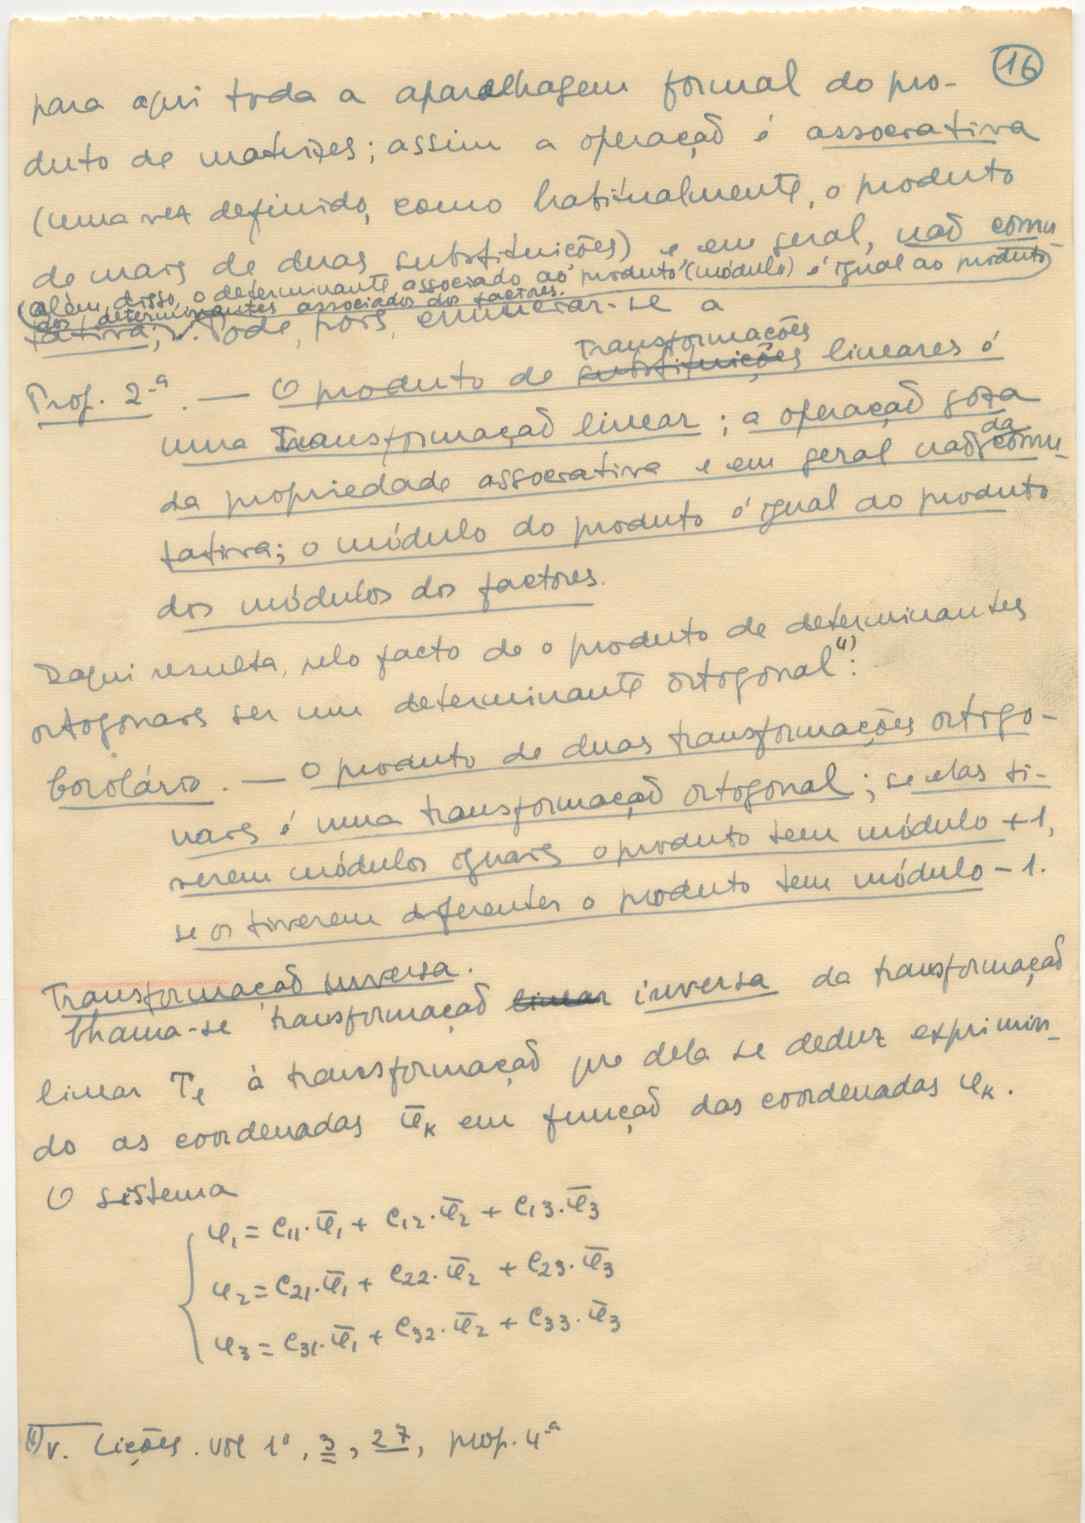 16
para aqui toda a aparelhagem formal do pro-
duto de matrizes; assim a operação é associativa
(uma vez definido, como habitualmente, o produto
de mais de duas substituições) e em geral, não comu-
(além disso, o determinante associado ao produto (módulo) é igual ao produto
dos determinantes associados dos factores.
tativa; Pode, pois, enunciar-se a
Prop. 2-ª. — O produto de substituições transformações lineares é
uma transformação linear; a operação goza
da propriedade associativa e em geral não da comu-
tativa; o módulo do produto é igual ao produto
dos módulos dos factores.
Daqui resulta, pelo facto de o produto de determinantes
ortogonais ser um determinante ortogonal(1):
Corolário. — O produto de duas transformações ortogo-
nais é uma transformação ortogonal; se elas ti-
verem módulos iguais o produto tem módulo +1,
se os tiverem diferentes o produto tem módulo -1.
Transformação inversa.
Chama-se transformação linear inversa da transformação
linear T₁ à transformação que dela se deduz exprimin-
do as coordenadas ū_K em função das coordenadas u_K.
O sistema
u₁ = c₁₁.ū₁ + c₁₂.ū₂ + c₁₃.ū₃
u₂ = c₂₁.ū₁ + c₂₂.ū₂ + c₂₃.ū₃
u₃ = c₃₁.ū₁ + c₃₂.ū₂ + c₃₃.ū₃
(1) V. Lições. vol 1º, 3, 27, prop. 4-ª